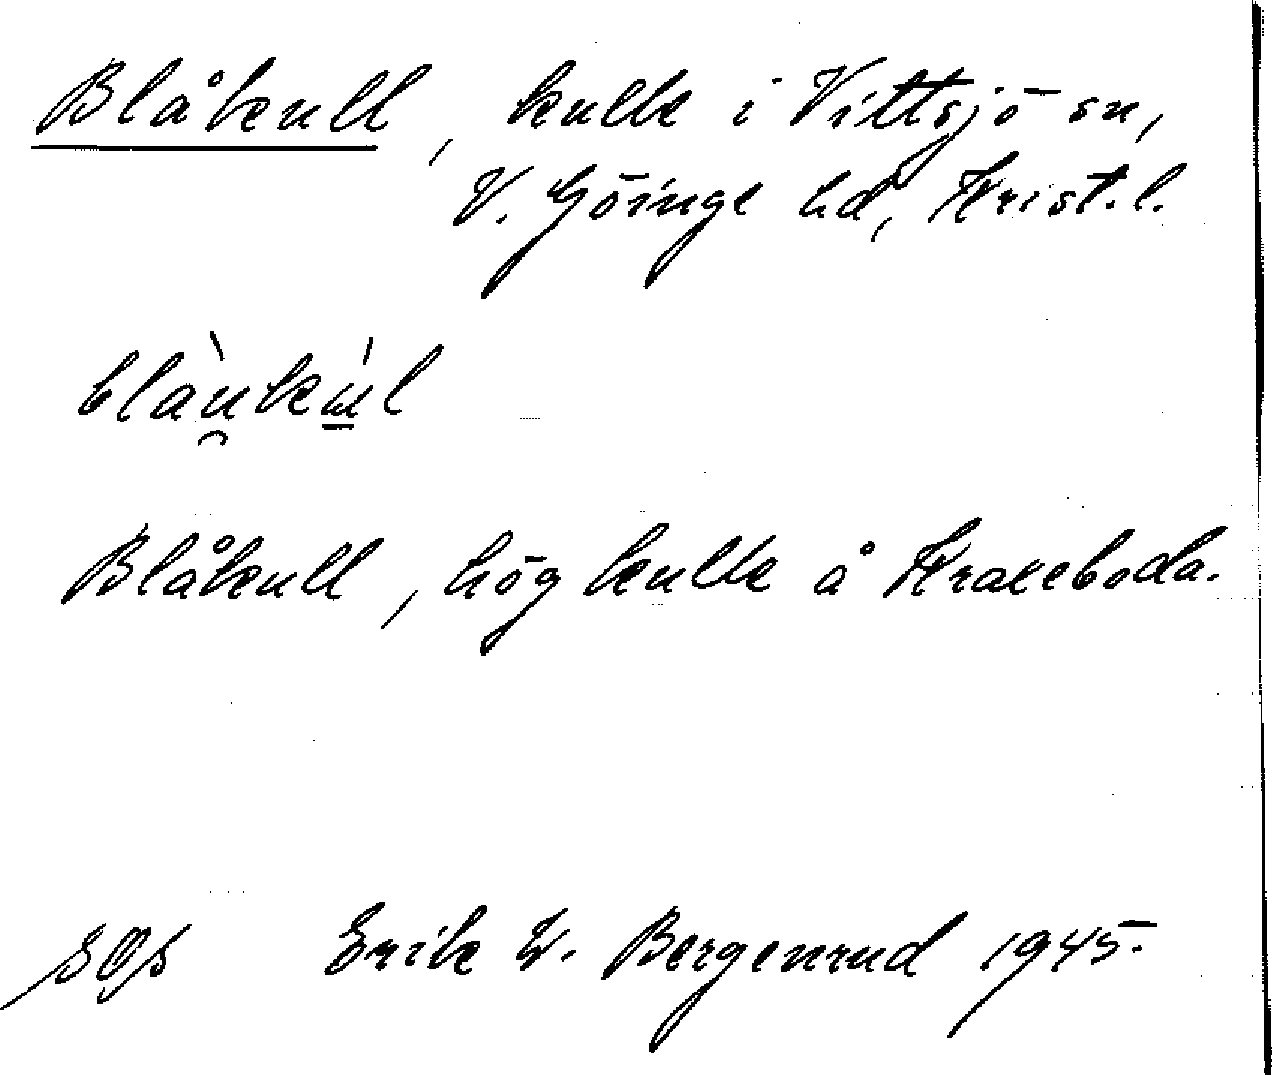 Blåkull, kulle i Vittsjö sn,
V. Göinge hd, Krist. l.
Blåkull, hög kulle å
Erik W. Bergenrud 1945.